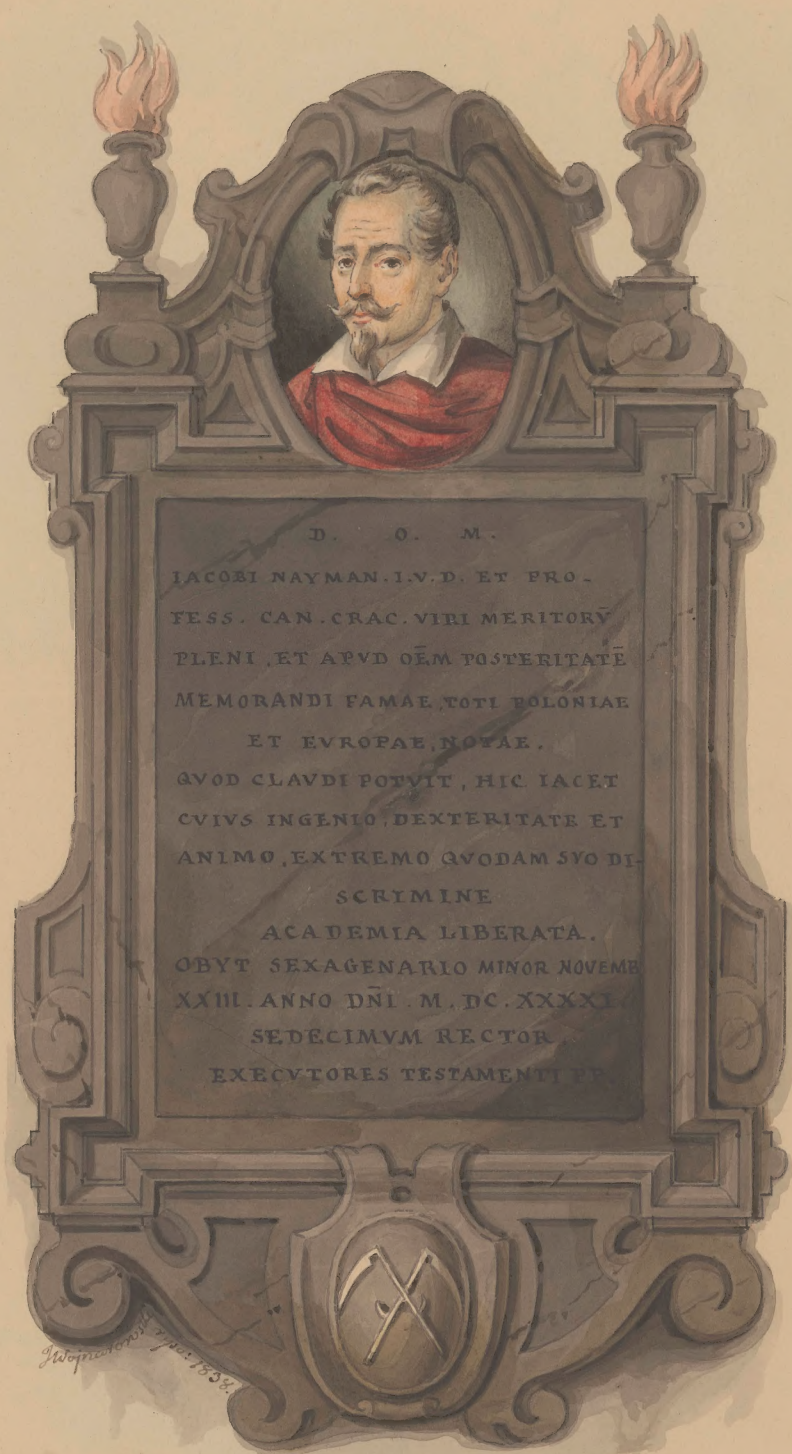 D. O. M.
IACOBI NAYMAN . I . V . D . ET PRO-
FESS . CAN . CRAC . VIRI MERITORV̄
PLENI , ET APVD OĒM POSTERITATĒ
MEMORANDI FAMAE , TOTI POLONIAE
ET EVROPAE , NOTAE .
QVOD CLAVDI POTVIT , HIC IACET
CVIVS INGENIO , DEXTERITATE ET
ANIMO , EXTREMO QVODAM SVO DI-
SCRYMINE
ACADEMIA LIBERATA .
OBYT SEXAGENARIO MINOR NOVEMB
XXIII . ANNO DN̄I . M . DC . XXXXI
SEDECIMVM RECTOR .
EXECVTORES TESTAMENTI PP.
1838.